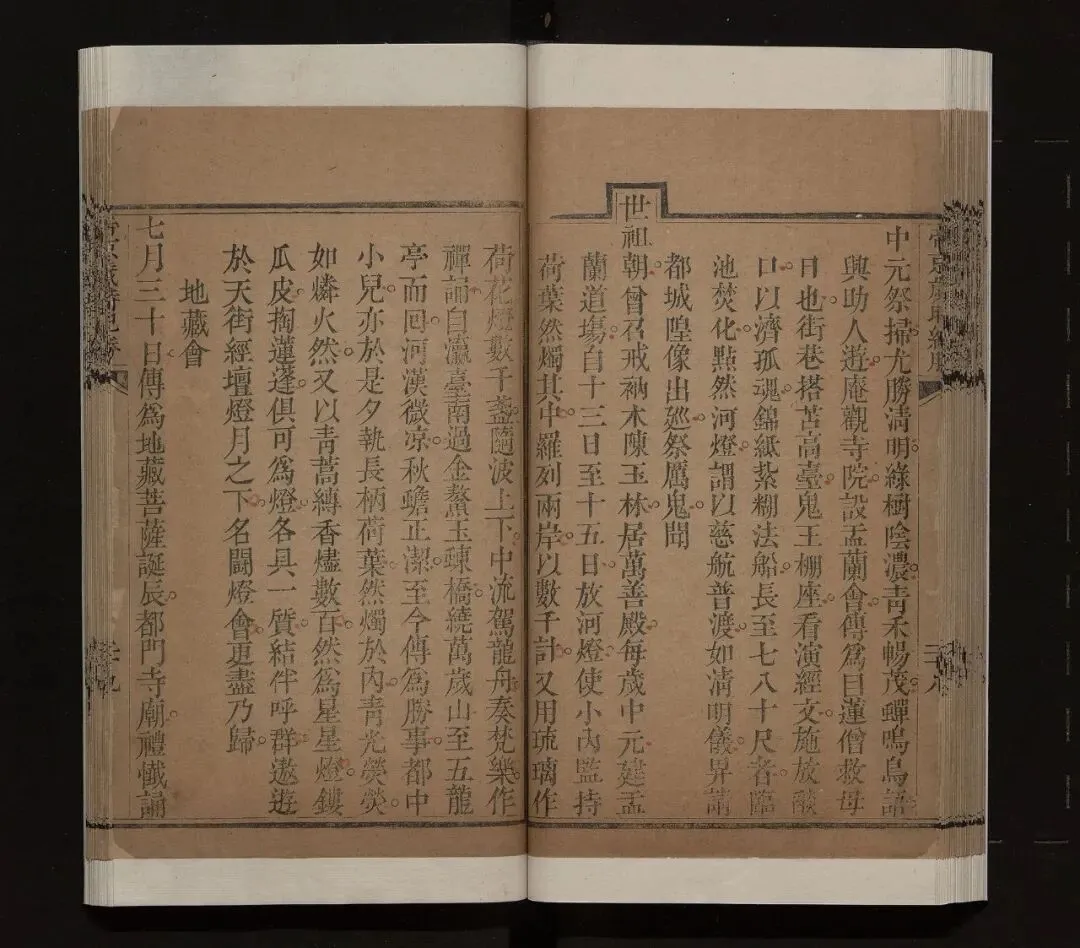 中元祭掃尤勝清明綠樹陰濃青禾暢茂蟬鳴鳥語
興助人遊庵觀寺院設盂蘭會傳為目蓮僧救母
日也街巷搭苫高臺鬼王棚座看演經文施放燄
口以濟孤魂錦紙紮糊法船長至七八十尺者臨
池焚化點然河燈謂以慈航普渡如清明儀舁請
都城隍像出廵祭厲鬼聞
世祖朝曾召戒衲木陳玉林居萬善殿每歲中元建盂
蘭道塲自十三日至十五日放河燈使小內監持
荷葉然燭其中羅列兩岸以數千計又用琉璃作
荷花燈數千盞隨波上下中流駕龍舟奏梵樂作
禪誦自瀛臺南過金鰲玉蝀橋繞萬歲山至五龍
亭而回河漢微凉秋蟾正潔至今傳為勝事都中
小兒亦於是夕執長柄荷葉然燭於內青光熒熒
如燐火然又以青蒿縛香燼數百然為星星燈鏤
瓜皮掏蓮蓬俱可為燈各具一質結伴呼群遨遊
於天街經壇燈月之下名鬪燈會更盡乃歸
地藏會
七月三十日傳為地藏菩薩誕辰都門寺廟禮懺誦
帝京歲時紀勝
二十九